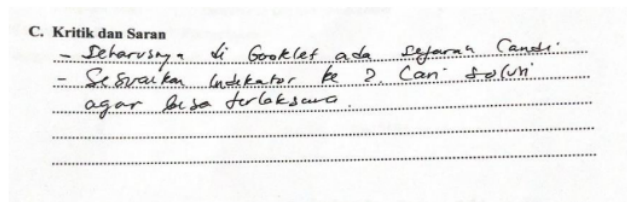 C. Kritik dan Saran
- Seharusnya di Booklet ada sejarah Candi.
- Sesuaikan Indikator ke 2. Cari solusi
agar bisa terlaksana.